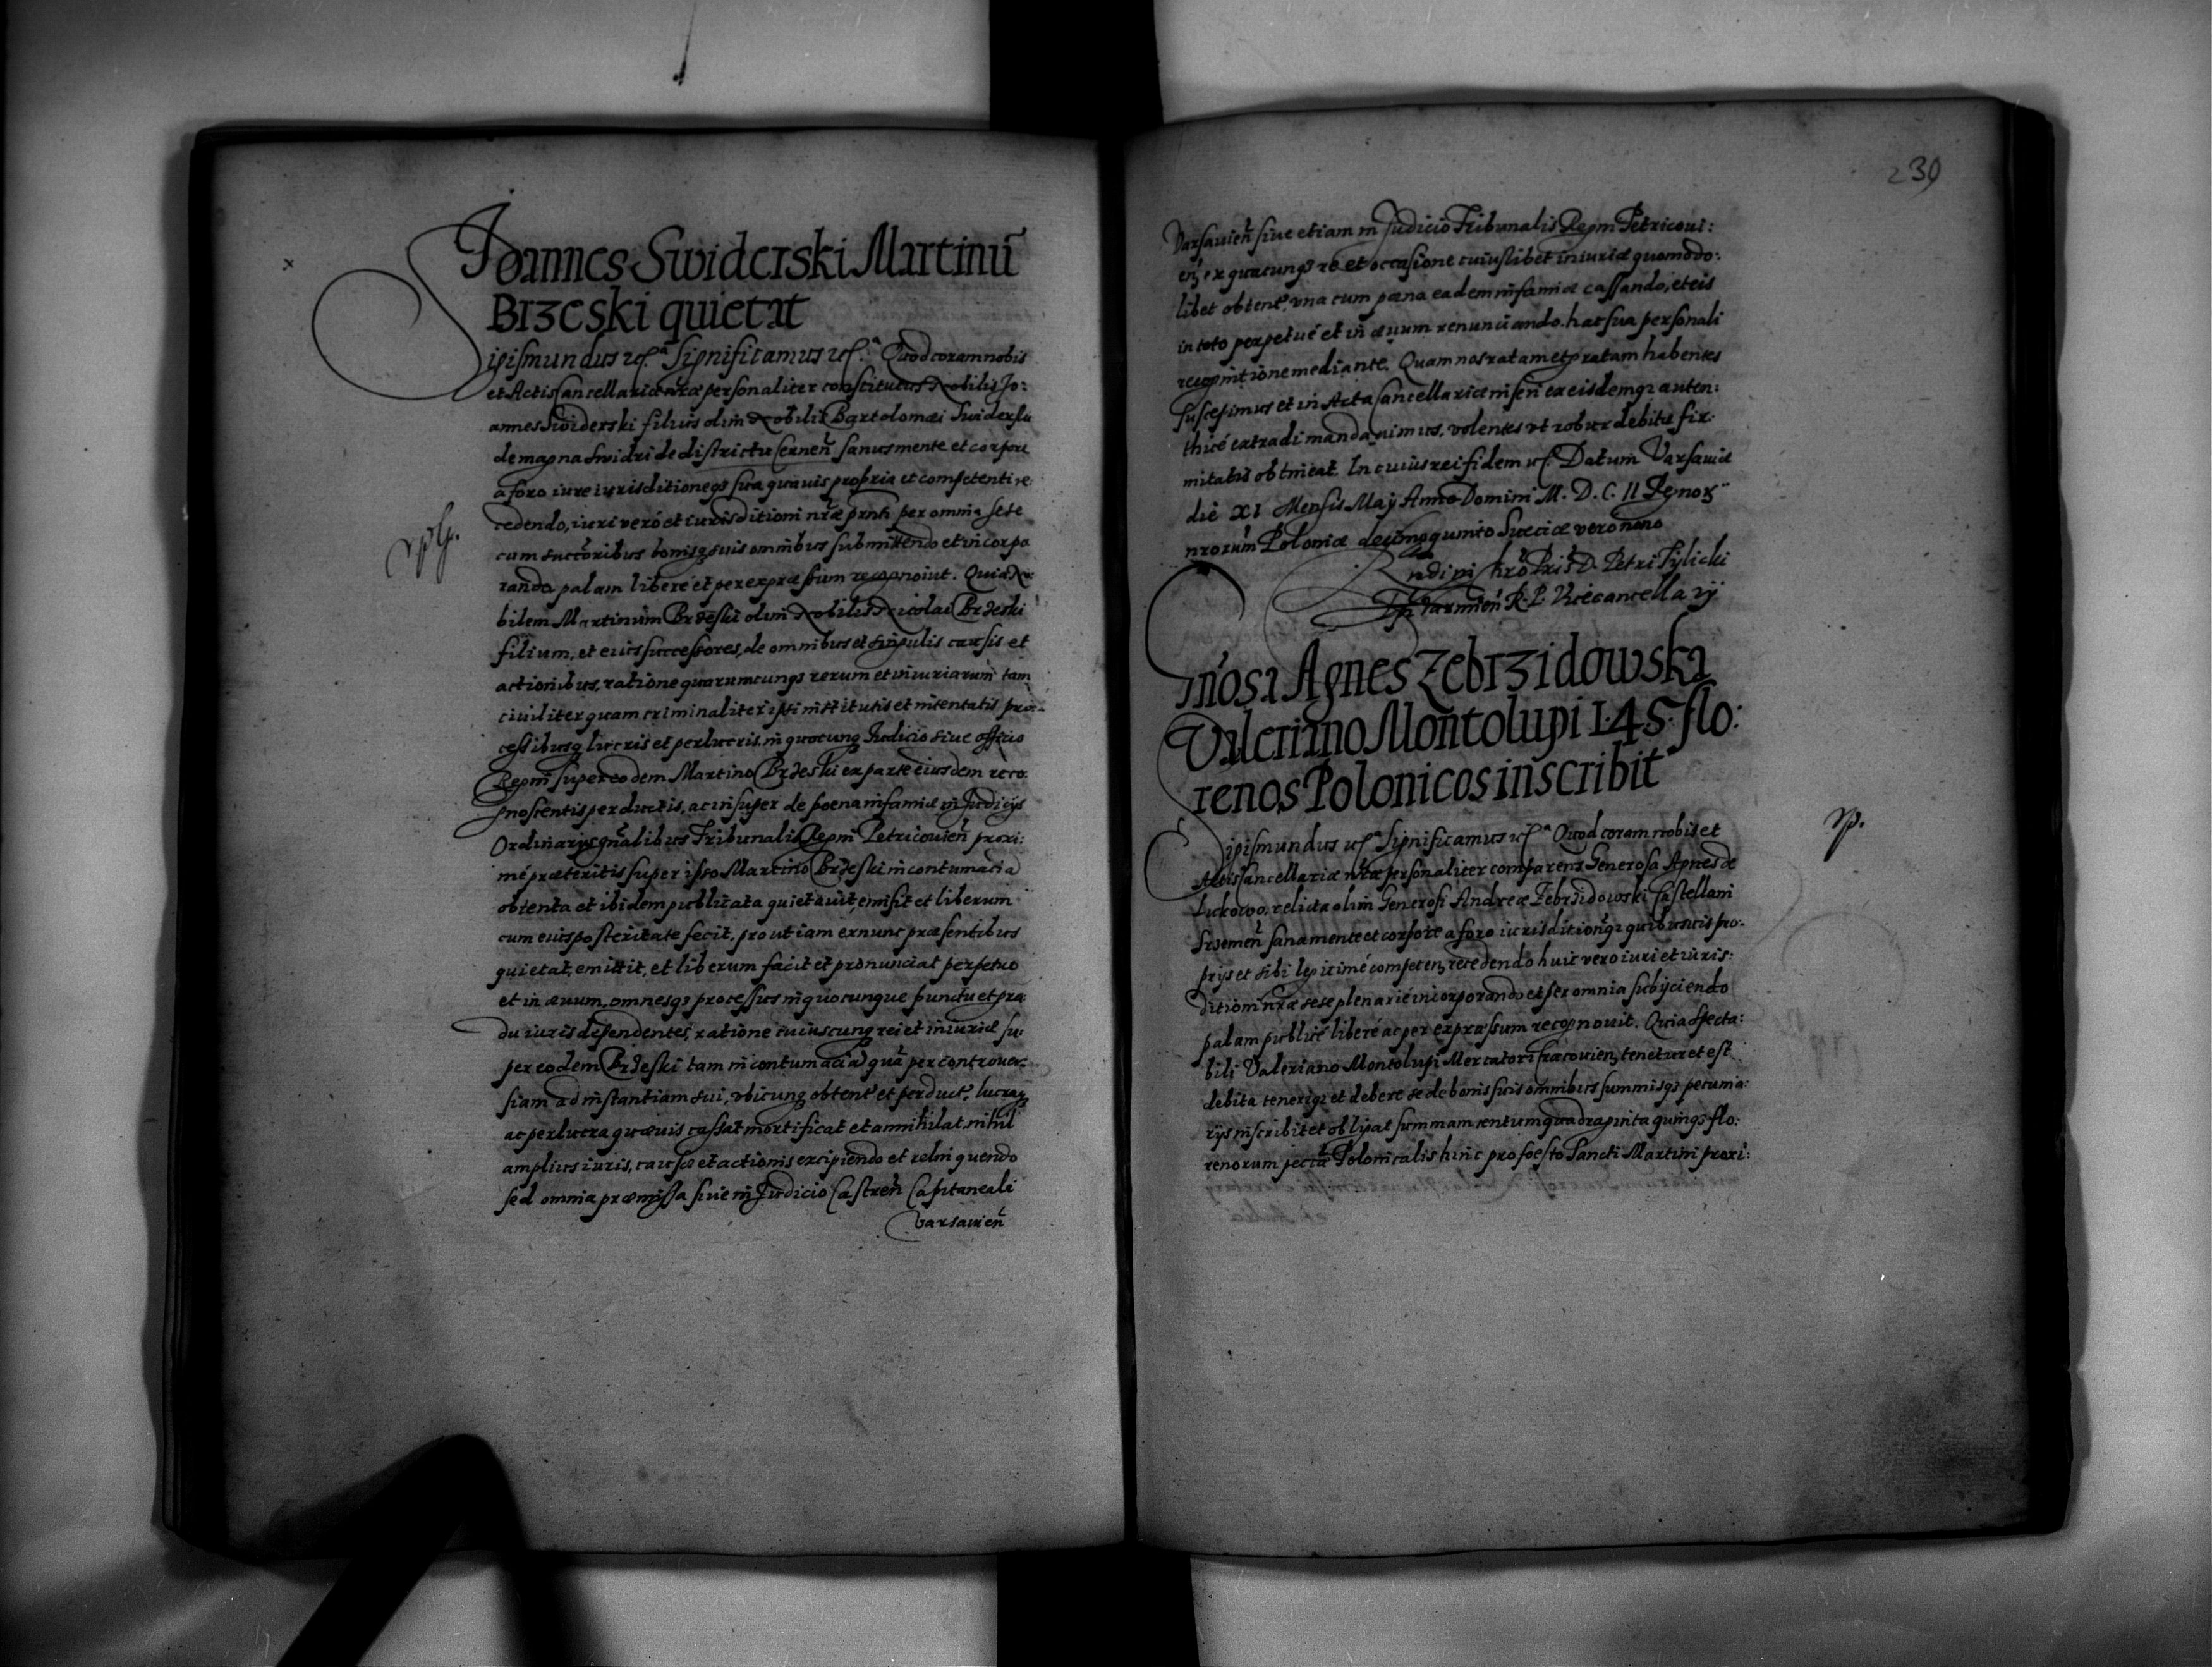 Joannes Swiderski Martinū
Brzeski quietat
Sigismundus etc. Significamus etc. Quod coram nobis
et Actis Cancellariæ nr̃æ personaliter constitutus Nobilis Jo:
annes Swiderski filius olim Nobilis Bartolomæi Swiderski
de magna Swidri de districtu Cernen̄ sanus mente et corpore
a foro iure iurisditioneq3 sua quauis propria et competenti re
cedendo, iuri veró et iurisditioni nr̃æ pr̃nti per omnia sese
cum succ̄oribus bonisq3 suis omnibus submittendo et incorpo
rando palam liberé et per expræssum recognouit. Quia No:
bilem Martinum Brzeski olim Nobilis Nicolai Brzeski
filium, et eius successores, de omnibus et singulis causis et
actionibus, ratione quarumcunq3 rerum et iniuriarum tam
ciuiliter quam criminaliter ipsi institutis et intentatis pro:
cessibusq3 lucris et perlucris in quocunq3 Judicio siue officio
Regni super eodem Martino Brzeski ex parte eiusdem reco:
gnoscentis perductis, ac insuper de poena infamiæ in Judicijs
Ordinarijs gñalibus Tribunalis Regni Petricouien̄ proxi:
mé præteritis super ipso Martino Brzeski in contumacia
obtenta et ibidem publicata quietauit, emisit et liberum
cum eius posteritate fecit, prout iam ex nunc præsentibus
quietat, emittit, et liberum facit et pronunciat perpetuo
et in æuum, omnesq3 processus in quocunque punctu et gra
du iuris dependentes, ratione cuiuscunq3 rei et iniuriæ su:
per eodem Brzeski tam in contumacia quā per controuer:
siam ad instantiam sui, vbicunq3 obtent̄ et perduct̄, lucraq3
ac perlucra quæuis cassat mortificat et annihilat, nihil
amplius iuris, causæ et actionis excipiendo et relinquendo
sed omnia præmissa siue in Judicio Castren̄ Capitaneali
Varsauien̄
239
Varsauien̄ siue etiam in Judicio Tribunalis Regni Petricoui:
en̄, ex quacunq3 re et occasione cuiuslibet iniuriæ quomodo:
libet obtent̄, vna cum poena eadem infamiæ cassando, et eis
in toto perpetué et in æuum renunciando. hac sua personali
recognitione mediante. Quam nos ratam et gratam habentes
suscepimus et in Acta Cancellariæ inseri ex eisdemq3 auten:
thicé extradi mandauimus, volentes vt robur debitæ fir:
mitatis obtineat. In cuius rei fidem etc. Datum Varsauiæ
die XI Mensis Maij Anno Domini M. D. C. II Regnor̄
nrorum Poloniæ decimoquinto Sueciæ vero nono
D. Petri Tylicki
Ep̄i Varmien̄ R. P. Vicecancellarij
Gñosa Agnes Zebrzidowska
Valeriano Montolupi 145 flo:
renos Polonicos inscribit
Sigismundus etc. Significamus etc. Quod coram nobis et
Actis Cancellariæ nr̃æ personaliter comparens Generosa Agnes de
relicta olim Generosi Andreæ Zebrzidowski Castellani
Sremen̄ sana mente et corpore a foro iurisditionq3 quibusuis pro:
prijs et sibi legitimé competen̄ recedendo huic vero iuri et iuris:
ditioni nr̃æ sese plenarié incorporando et per omnia subijciendo
palam publicé liberé ac per expræssum recognouit. Quia Specta:
bili Valeriano Montolupi Mercatori Cracouien̄ tenetur et est
debita tenerique et debere se de bonis suis omnibus summisq3 pecunia:
rijs inscribit et obligat summam centum quadraginta quinq3 flo:
renorum Polonicalis hinc pro foesto Sancti Martini proxi: